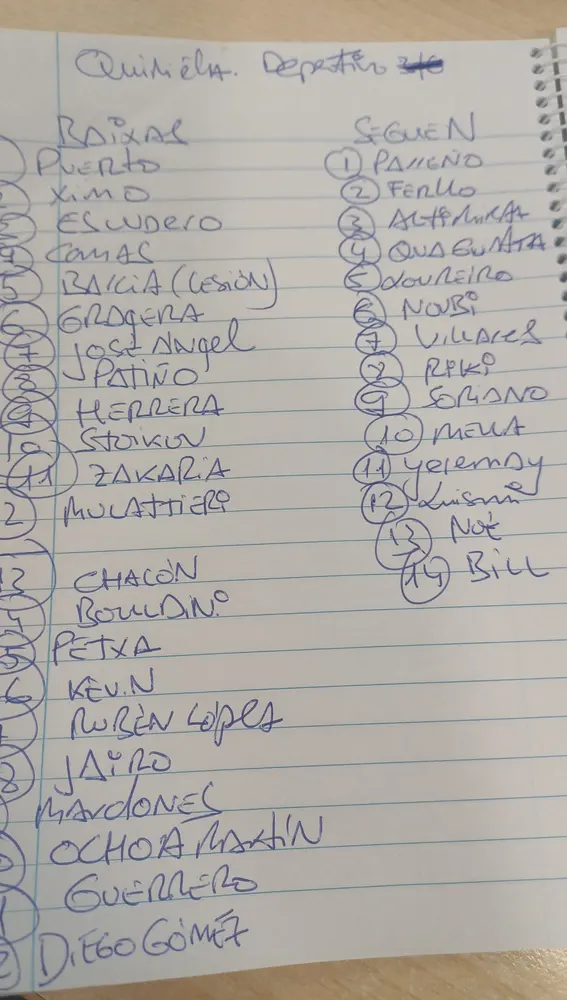 Quiniela. Deportivo
BAIXAS
PUERTO
XIMO
ESCUDERO
COMAS
5 BARCIA (LESIÓN)
6 GRAGERA
7 JOSÉ ANGEL
8 PATIÑO
9 HERRERA
10 STOIKOV
11 ZAKARIA
2 MULATTIERI
13 CHACÓN
BOULDINI
5 PETXA
6 KEVIN
RUBÉN LÓPEZ
8 JAIRO
MARDONES
OCHOA MARTÍN
GUERRERO
2 DIEGO GÓMEZ
SEGUEN
1 PARREÑO
2 FERLLO
3 ALTIMIRA
4 QUAGLIATA
5 LOUREIRO
6 NOUBI
7 VILLARES
8 RIKI
9 SORIANO
10 MELLA
11 Yeremay
12 Luismi
13 NOÉ
14 BILL